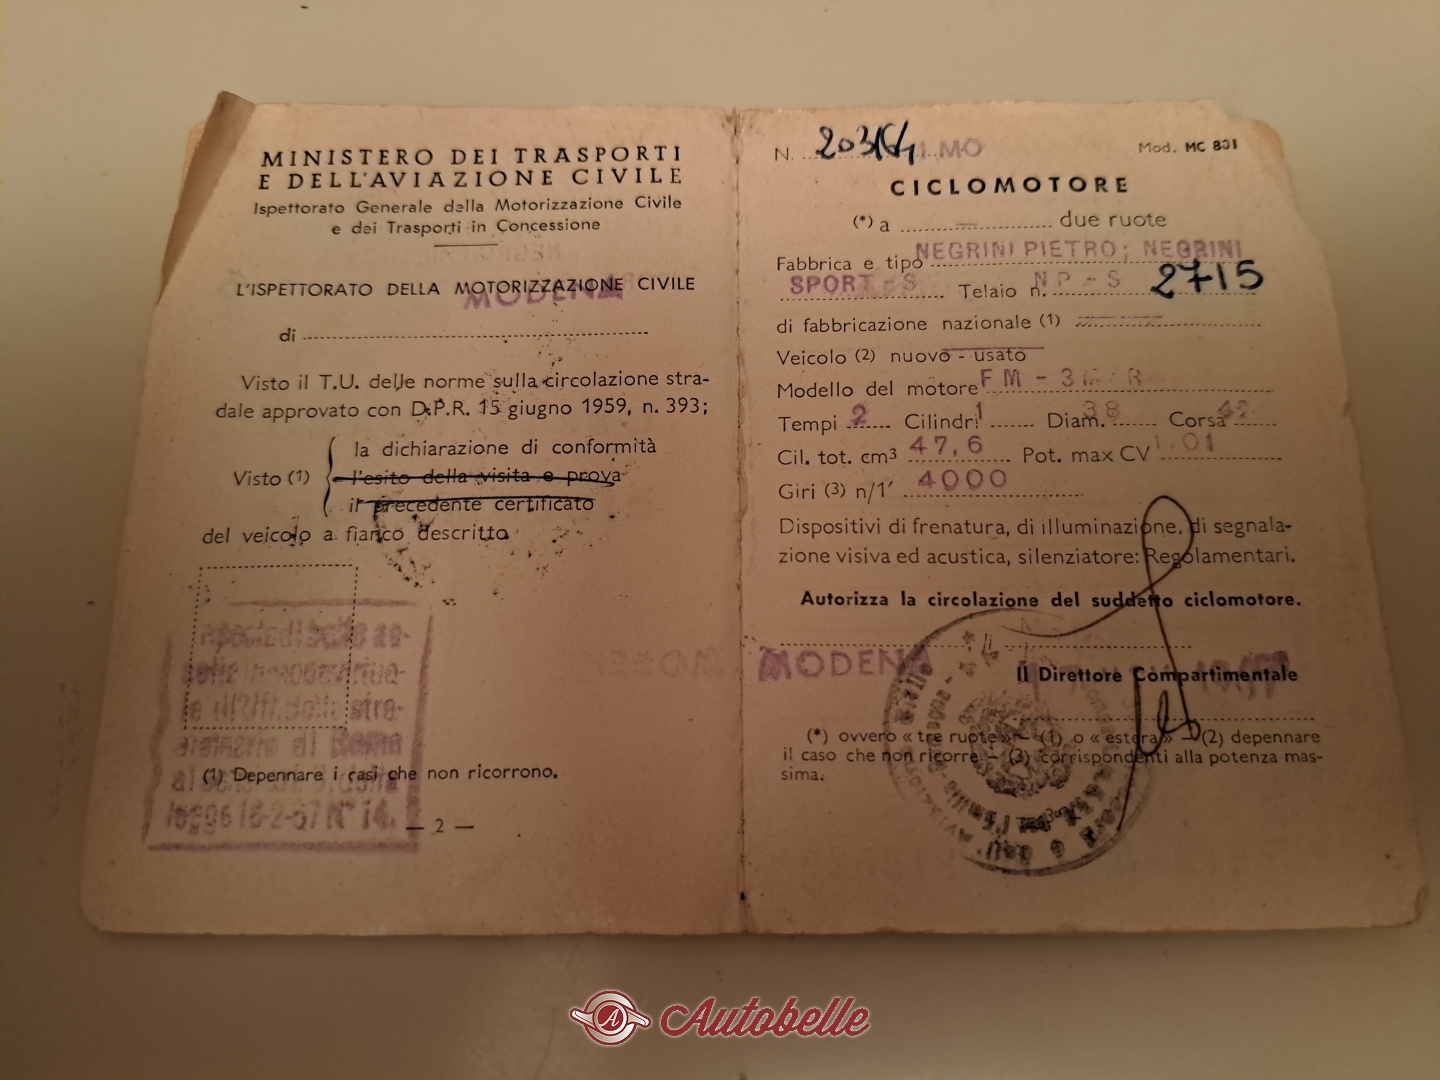 MINISTERO DEI TRASPORTI
E DELL'AVIAZIONE CIVILE
Ispettorato Generale della Motorizzazione Civile
e dei Trasporti in Concessione
L'ISPETTORATO DELLA MOTORIZZAZIONE CIVILE
MODENA
di
Visto il T.U. delle norme sulla circolazione stra-
dale approvato con D.P.R. 15 giugno 1959, n. 393;
la dichiarazione di conformità
Visto (1) l'esito della visita e prova
il precedente certificato
del veicolo a fianco descritto
(1) Depennare i casi che non ricorrono.
— 2 —
N. Mod. MC 801
CICLOMOTORE
(*) a due ruote
Fabbrica e tipo NEGRINI PIETRO; NEGRINI
SPORT - S Telaio n. NP - S 2715
di fabbricazione nazionale (1)
Veicolo (2) nuovo - usato
Modello del motore FM - 3M - R
Tempi 2 Cilindri 1 Diam. 38 Corsa 42
Cil. tot. cm3 47,6 Pot. max CV 1.01
Giri (3) n/1' 4000
Dispositivi di frenatura, di illuminazione, di segnala-
zione visiva ed acustica, silenziatore: Regolamentari.
Autorizza la circolazione del suddetto ciclomotore.
MODENA
Il Direttore Compartimentale
(*) ovvero « tre ruote » — (1) o « estera » — (2) depennare
il caso che non ricorre — (3) corrispondenti alla potenza mas-
sima.
— 3 —
Autobelle